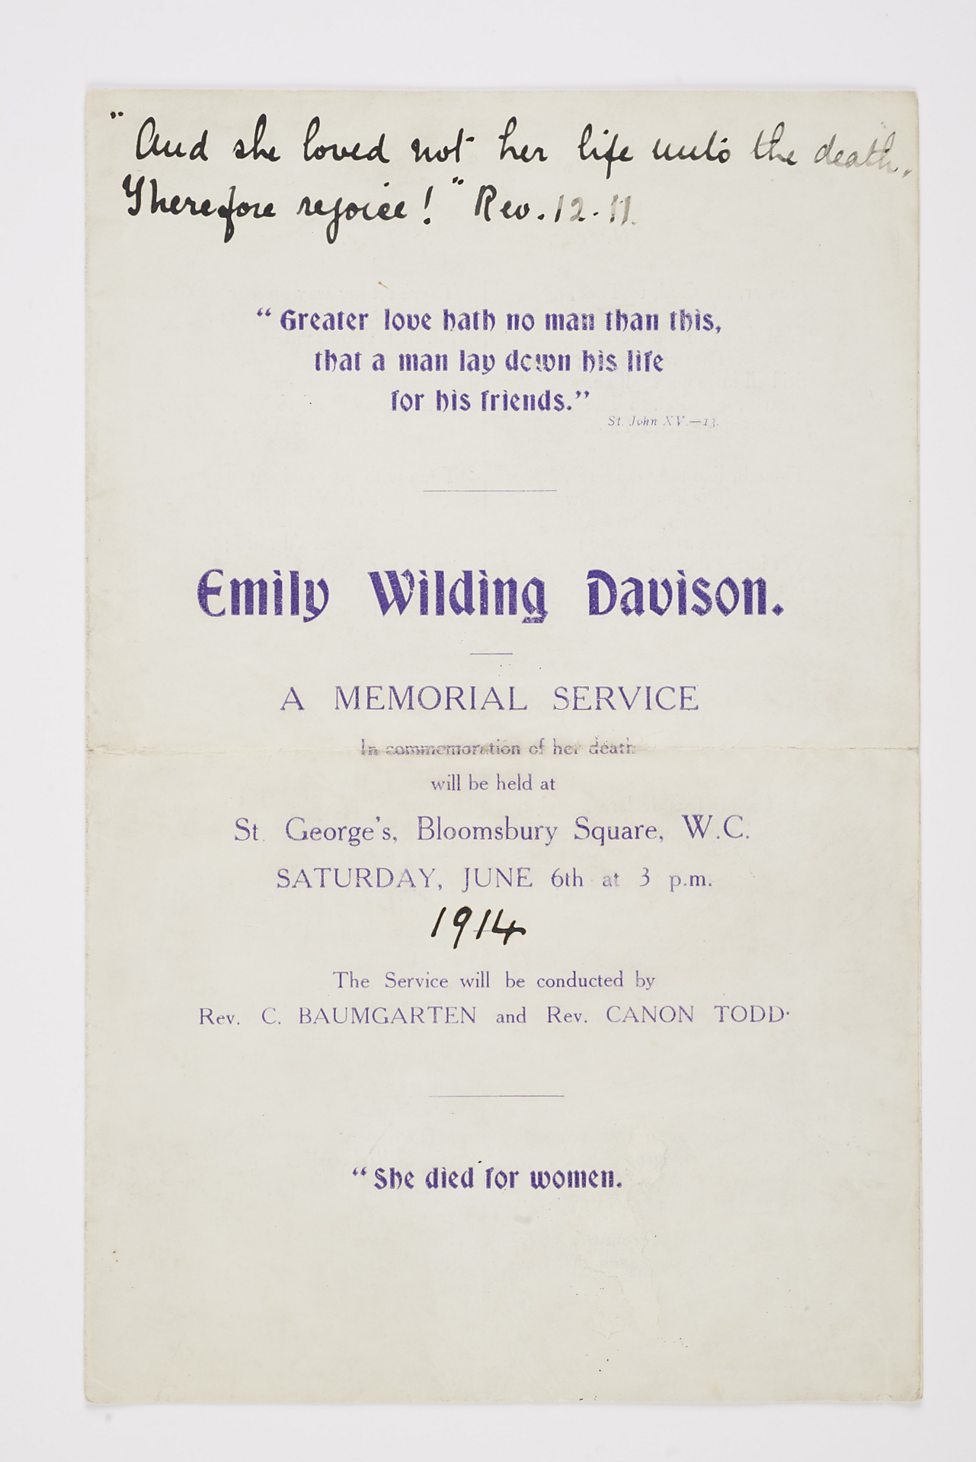 "And she loved not her life unto the death.
Therefore rejoice!" Rev. 12. 11.
"Greater love hath no man than this,
that a man lay down his life
for his friends."
St. John XV.—13.
Emily Wilding Davison.
A MEMORIAL SERVICE
In commemoration of her death
will be held at
St. George's, Bloomsbury Square, W.C.
SATURDAY, JUNE 6th at 3 p.m.
1914
The Service will be conducted by
Rev. C. BAUMGARTEN and Rev. CANON TODD.
"She died for women.